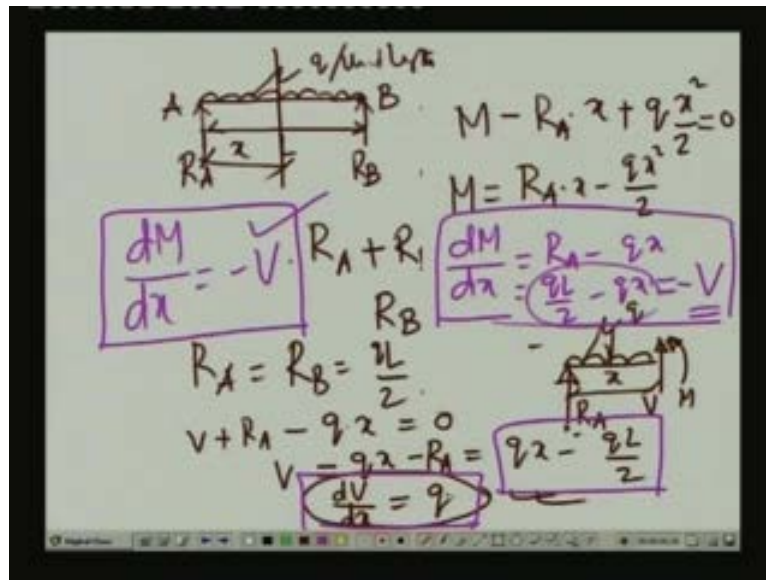 q/unit length
A B
R_A x R_B
M - R_A. x + q x²/2 = 0
M = R_A. x - qx²/2
dM/dx = -V
R_A + R
R_B
dM/dx = R_A - qx
= qL/2 - qx = -V
q
x
R_A V M
R_A = R_B = qL/2
V + R_A - qx = 0
V - qx - R_A = qx - qL/2
dV/dx = q